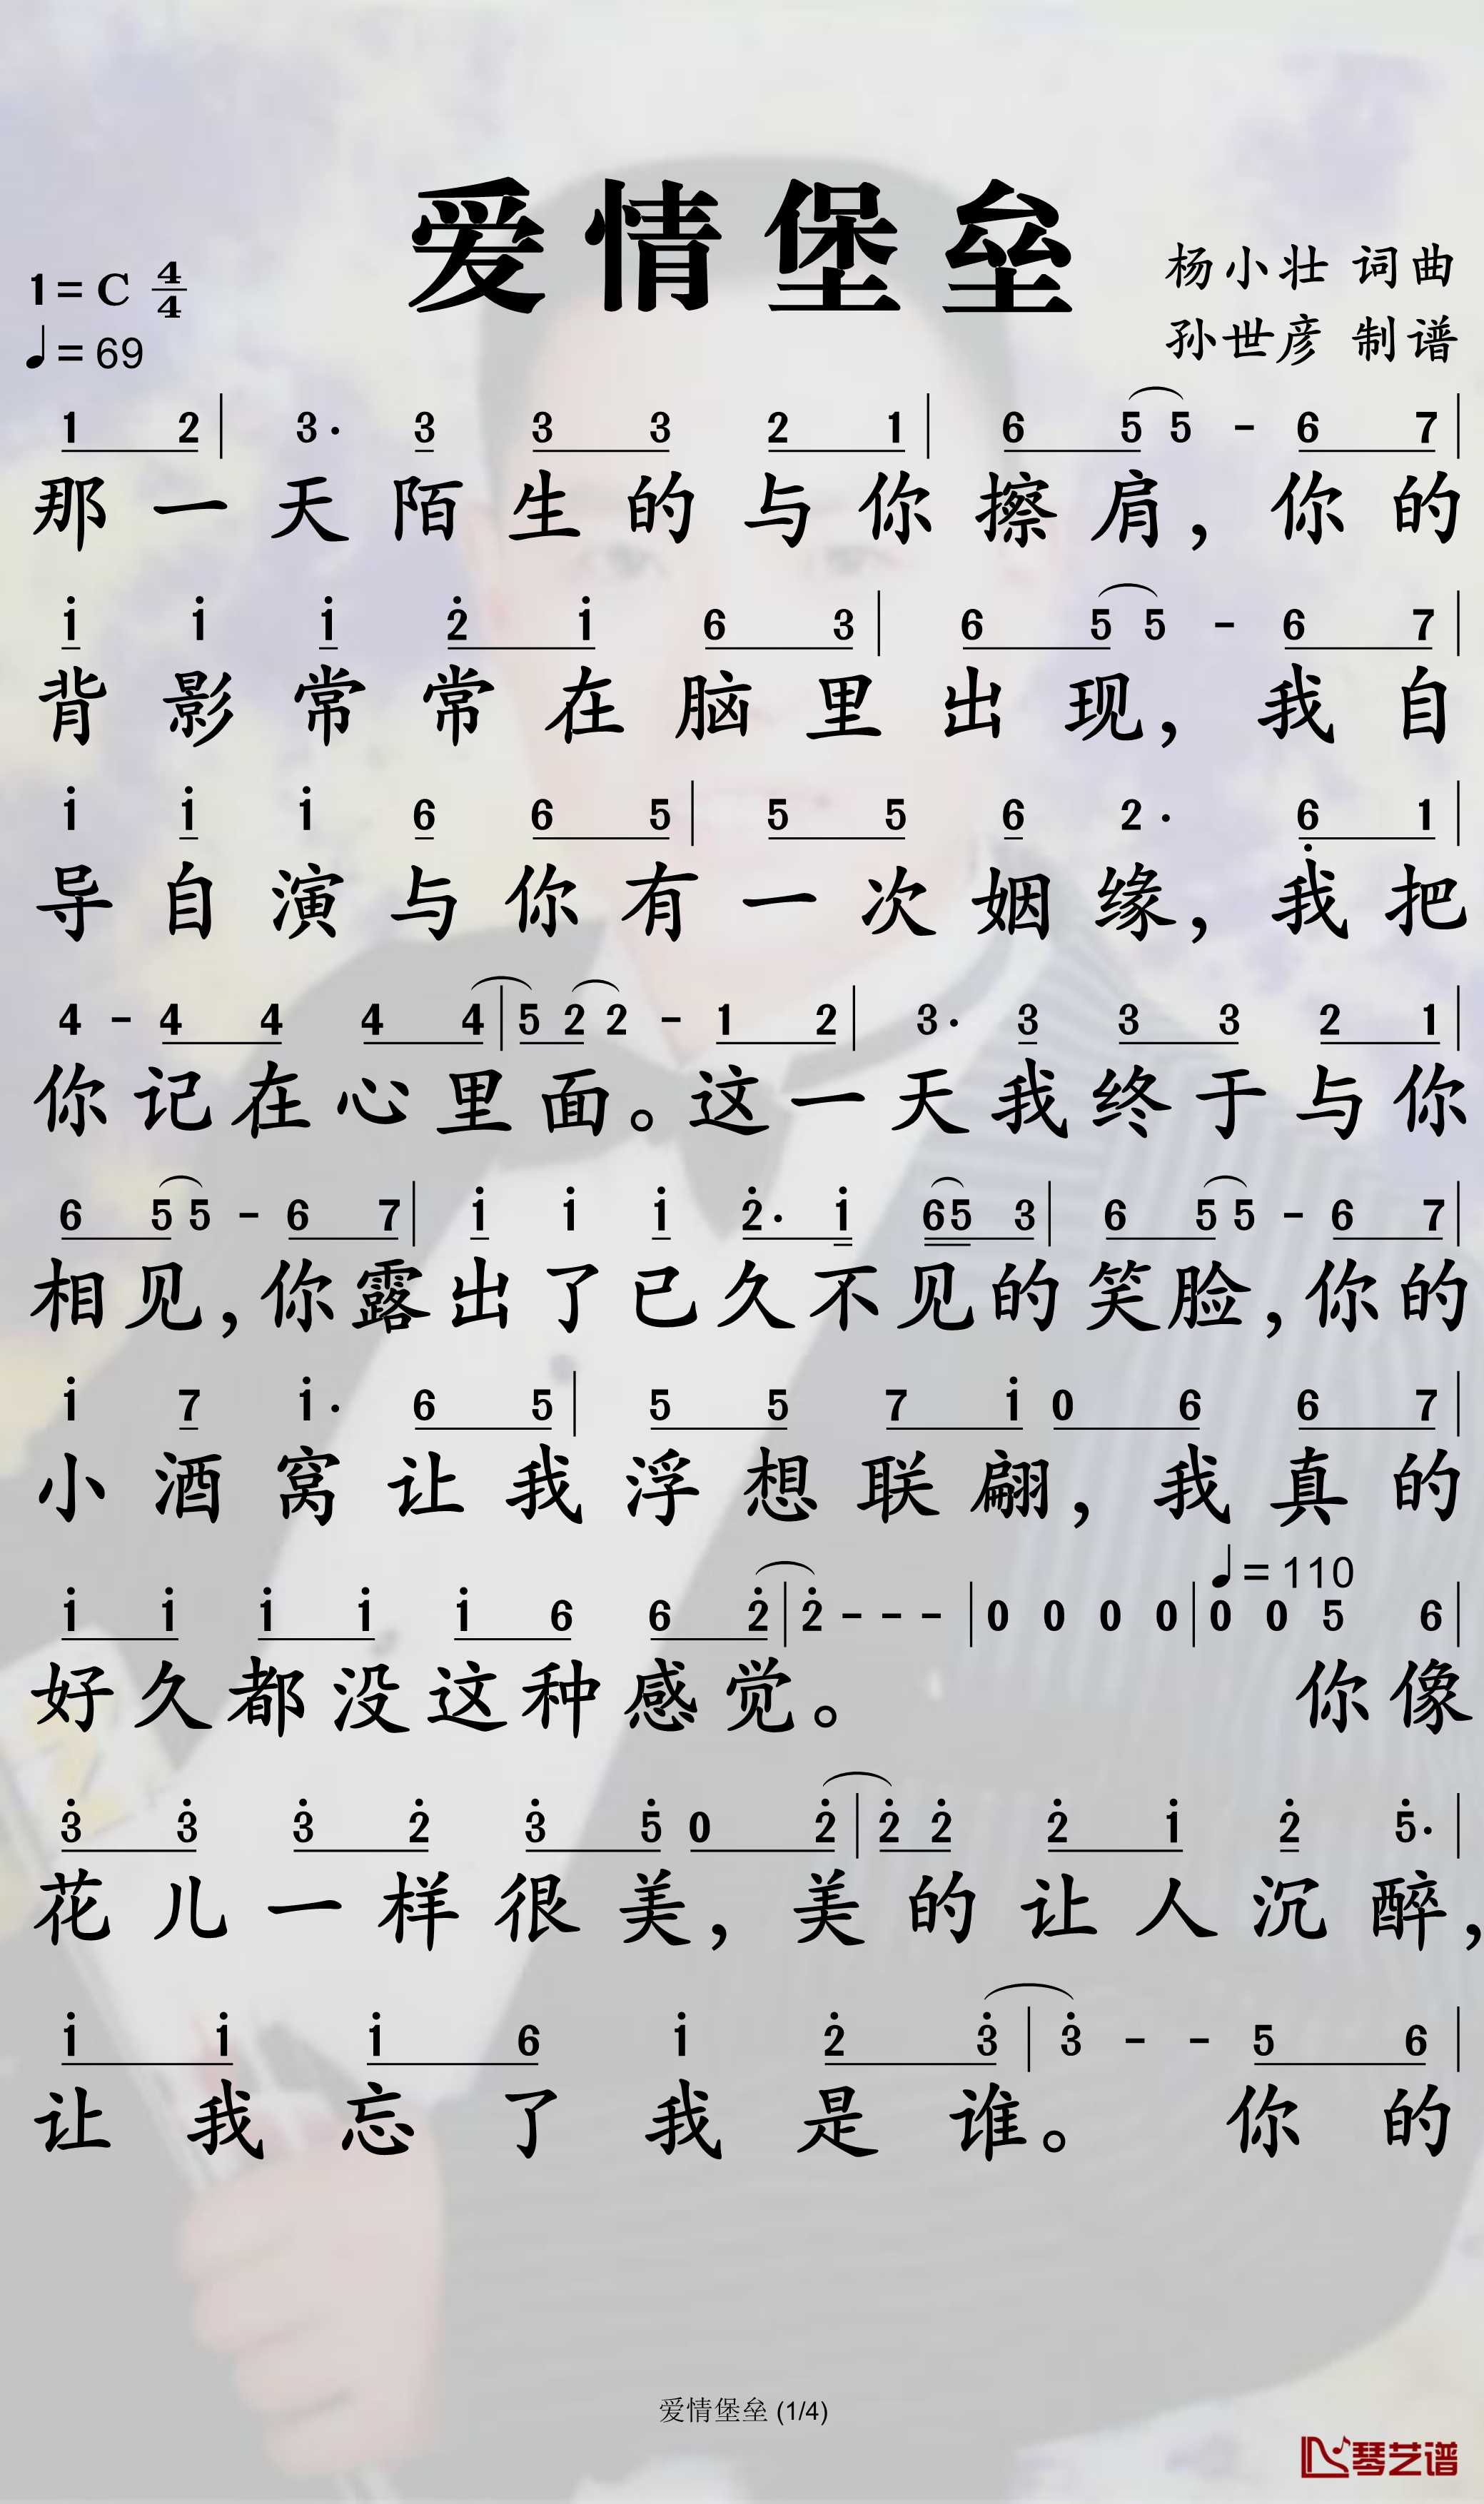 爱情堡垒
1=C 4/4
♩=69
杨小壮 词曲
孙世彦 制谱
1 2 | 3. 3 3 3 2 1 | 6 5 5 - 6 7 |
那一天陌生的与你擦肩，你的
i i i 2̇ i 6 3 | 6 5 5 - 6 7 |
背影常常在脑里出现，我自
i i i 6 6 5 | 5 5 6 2. 6̣ 1 |
导自演与你有一次姻缘，我把
4 - 4 4 4 4 | 5 2 2 - 1 2 | 3. 3 3 3 2 1 |
你记在心里面。这一天我终于与你
6 5 5 - 6 7 | i i i 2̇. i 6 5 3 | 6 5 5 - 6 7 |
相见，你露出了已久不见的笑脸，你的
i 7 i. 6 5 | 5 5 7 i 0 6 6 7 |
小酒窝让我浮想联翩，我真的
♩=110
i i i i i 6 6 2̇ | 2̇ - - - | 0 0 0 0 | 0 0 5 6 |
好久都没这种感觉。 你像
3̇ 3̇ 3̇ 2̇ 3̇ 5̇ 0 2̇ | 2̇ 2̇ 2̇ i 2̇ 5̇. |
花儿一样很美，美的让人沉醉，
i i i 6 i 2̇ 3̇ | 3̇ - - 5 6 |
让我忘了我是谁。你的
爱情堡垒 (1/4)
琴艺谱